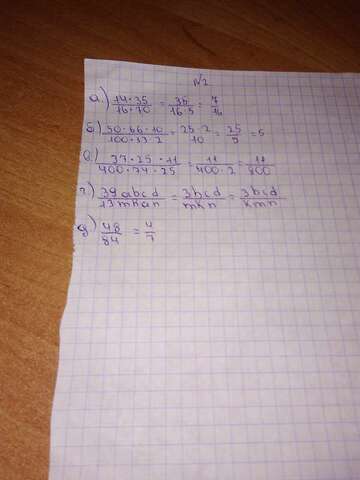 №2
а.) 14·35/16·70 = 35/16·5 = 7/16
б) 50·66·10/100·13·2 = 25·2/10 = 25/5 = 5
в.) 37·25·11/400·74·25 = 11/400·2 = 11/800
г) 39abcd/13mkan = 3bcd/mkn = 3bcd/kmn
д) 48/84 = 4/7